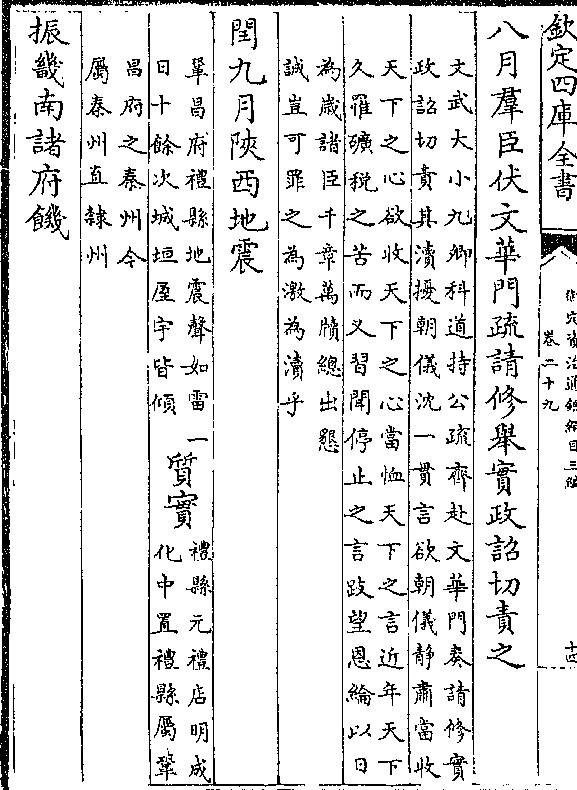 欽定四庫全書
御定資治通鑑綱目三編
卷二十九
十四
八月羣臣伏文華門疏請修舉實政詔切責之
文武大小九卿科道持公疏齊赴文華門奏請修實
政詔切責其瀆擾朝儀沈一貫言欲朝儀靜肅當收
天下之心欲收天下之心當恤天下之言近年天下
久罹礦稅之苦而又習聞停止之言跂望恩綸以日
為嵗諸臣千章萬牘總出懇
誠豈可罪之為激為瀆乎
閏九月陝西地震
鞏昌府禮縣地震聲如雷一
日十餘次城垣屋宇皆傾
質實
禮縣元禮店明成
化中置禮縣屬鞏
昌府之秦州今
屬秦州直隸州
振畿南諸府饑